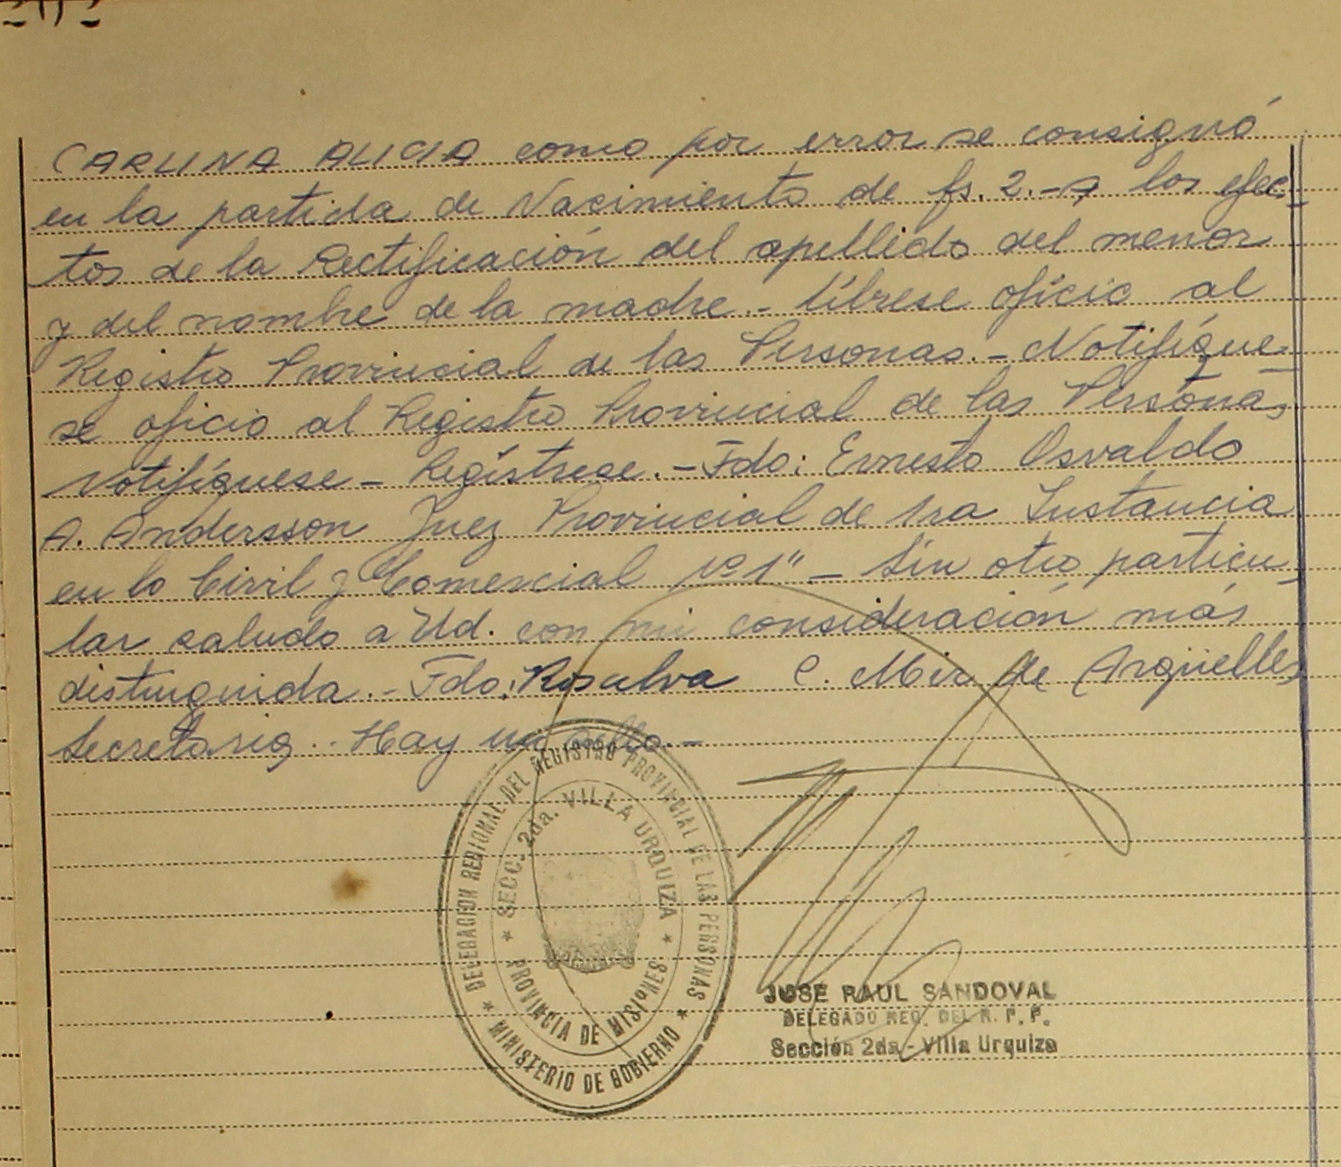 CARLINA ALICIA como por error se consignó
en la partida de Nacimiento de fs. 2.- A los efec-
tos de la Rectificación del apellido del menor
y del nombre de la madre.- líbrese oficio al
Registro Provincial de las Personas.- Notifíque-
se oficio al Registro Provincial de las Personas
Notifíquese - Regístrese.- Fdo: Ernesto Osvaldo
A. Andersson Juez Provincial de 1ra Instancia
en lo Civil y Comercial Nº 1" - Sin otro particu-
lar saludo a Ud. con mi consideración más
distinguida.- Fdo: Rosalva C. Mir de Argüelles
Secretaria.- Hay un sello.-
* DELEGACION REGIONAL DEL REGISTRO PROVINCIAL DE LAS PERSONAS *
MINISTERIO DE GOBIERNO
* SECC. 2da. VILLA URQUIZA *
PROVINCIA DE MISIONES
JOSE RAUL SANDOVAL
DELEGADO REG. DEL R. P. P.
Sección 2da - Villa Urquiza